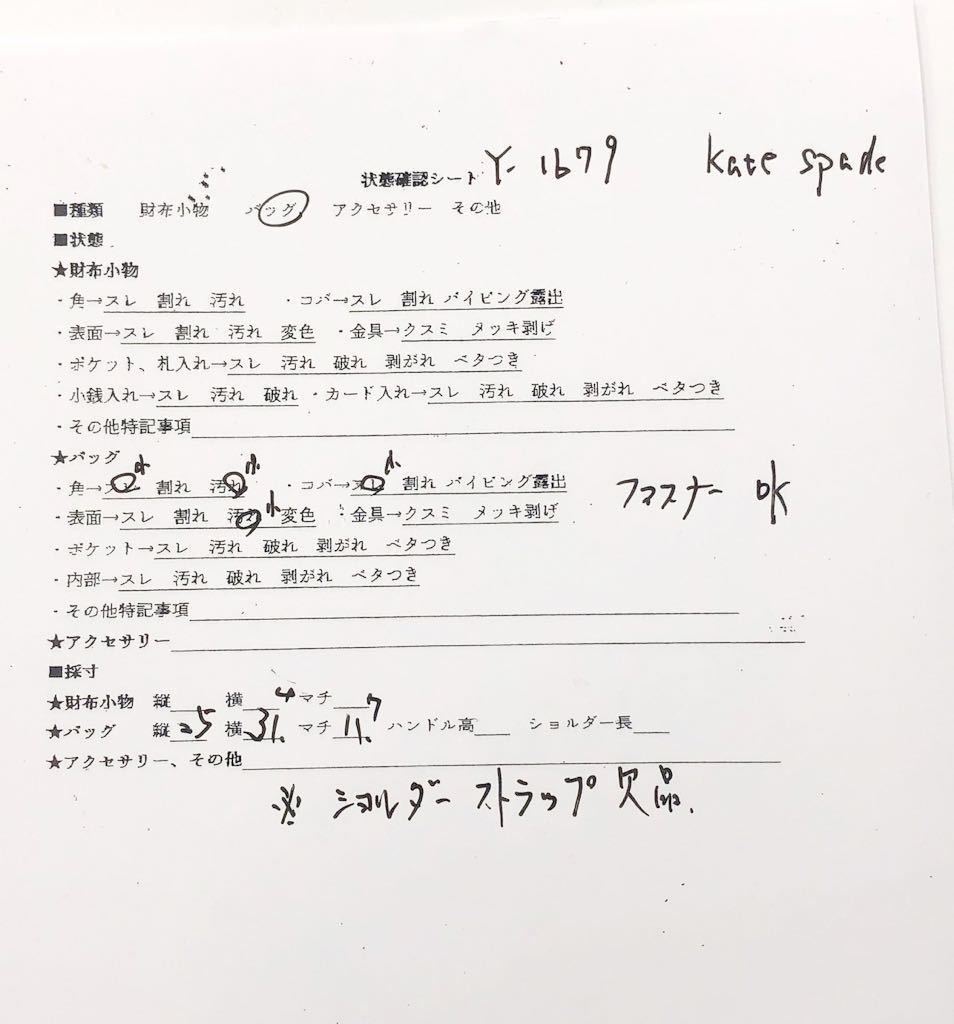 状態確認シート Y-1679 kate spade
■種類 財布小物 バッグ アクセサリー その他
■状態
★財布小物
・角→スレ 割れ 汚れ ・コバ→スレ 割れ パイピング露出
・表面→スレ 割れ 汚れ 変色 ・金具→クスミ メッキ剥げ
・ポケット、札入れ→スレ 汚れ 破れ 剥がれ ベタつき
・小銭入れ→スレ 汚れ 破れ ・カード入れ→スレ 汚れ 破れ 剥がれ ベタつき
・その他特記事項
★バッグ
小 小 小
・角→スレ 割れ 汚れ ・コバ→スレ 割れ パイピング露出 ファスナー OK
小
・表面→スレ 割れ 汚れ 変色 ・金具→クスミ メッキ剥げ
・ポケット→スレ 汚れ 破れ 剥がれ ベタつき
・内部→スレ 汚れ 破れ 剥がれ ベタつき
・その他特記事項
★アクセサリー
■採寸
★財布小物 縦 横 マチ
★バッグ 縦25 横31.4 マチ11.7 ハンドル高 ショルダー長
★アクセサリー、その他
※ ショルダーストラップ欠品.